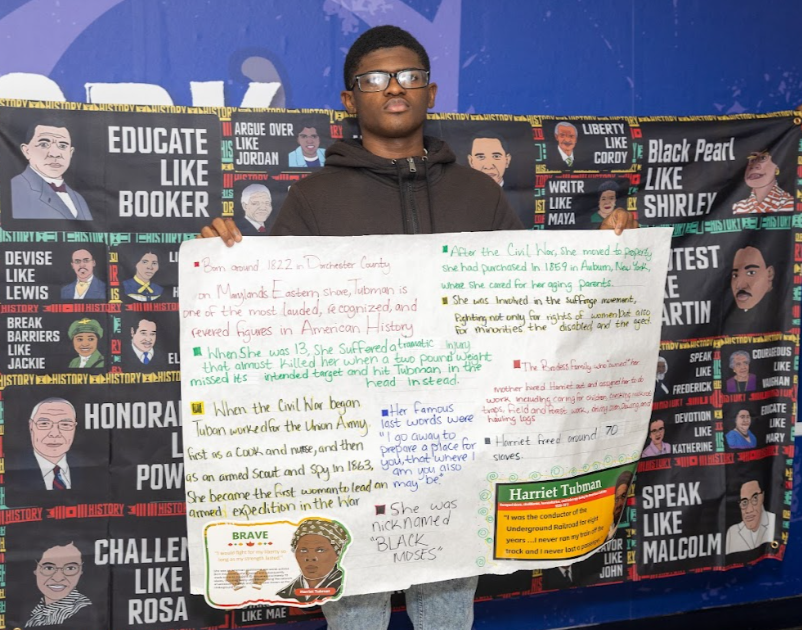 HISTORY
EDUCATE
LIKE
BOOKER
ARGUE OVER
LIKE
JORDAN
LIBERTY
LIKE
CORDY
WRITR
LIKE
MAYA
Black Pearl
LIKE
SHIRLEY
DEVISE
LIKE
LEWIS
BREAK
BARRIERS
LIKE
JACKIE
HONORA
L
POW
CHALLEN
LIKE
ROSA
LIKE MAE
TEST
LIKE
ARTIN
SPEAK
LIKE
FREDERICK
COURAGEOUS
LIKE
VAUGHAN
DEVOTION
LIKE
KATHERINE
EDUCATE
LIKE
MARY
SPEAK
LIKE
MALCOLM
LIKE
JOHN
Born around 1822 in Dorchester County
on Marylands Eastern shore, Tubman is
one of the most lauded, recognized, and
revered figures in American History
When She was 13, She Suffered a injury
that almost killed her when a two pound weight
missed its intended target and hit Tubman in the
head instead.
When the Civil War began
Tuban worked for the Union Army
first as a Cook and nurse, and then
as an armed Scout and Spy in 1863,
She became the first woman to lead an
armed expedition in the War
Her famous
last words were
"I go away to
prepare a place for
you, that where I
am you also
may be"
She was
nicknamed
"BLACK
MOSES"
After the Civil War, she moved to property
she had purchased in 1859 in Auburn, New York,
where she cared for her aging parents.
She was Involved in the suffrage movement,
fighting not only for rights of women but also
for minorities the disabled and the aged.
The Family who owned her
mother hired Harriet out and assigned her to do
work including caring for children, checking muskrat
traps, field and forest work, driving oxen, plowing, and
hauling logs
Harriet freed around 70
slaves.
BRAVE
Harriet Tubman
Harriet Tubman
"I was the conductor of the
Underground Railroad for eight
years ...I never ran my train off the
track and I never lost a